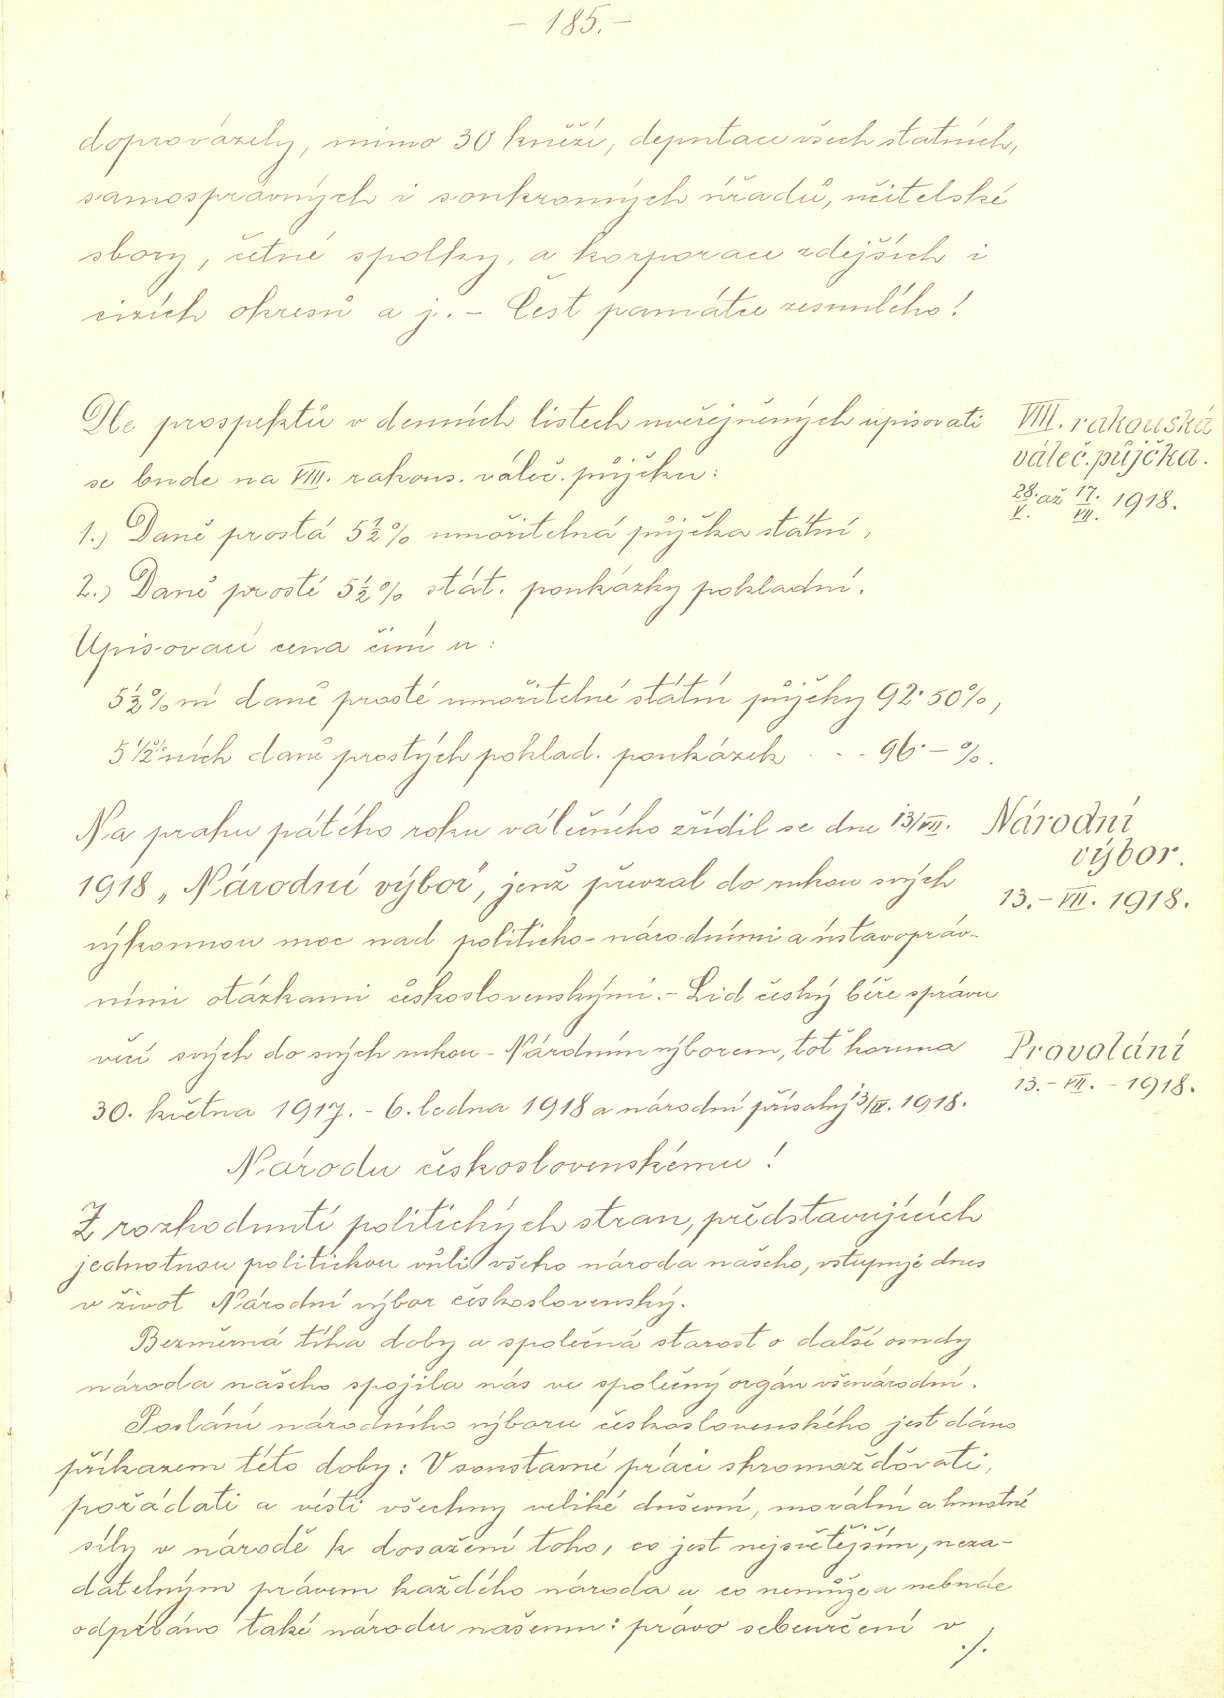 – 185. –
doprovázely, mimo 30 kněží, deputace všech statních,
samosprávných i soukromých úřadů, učitelské
sbory, četné spolky, a korporace zdejších i
cizích okresů a j. – Čest památce zesnulého!
Dle prospektů v denních listech uveřejněných upisovati
se bude na VIII. rakous. váleč. půjčku:
VIII. rakouská
váleč. půjčka.
28./V. až 17./VII. 1918.
1.) Daně prostá 5½% umořitelná půjčka státní,
2.) Daně prosté 5½% stát. poukázky pokladní.
Upisovací cena činí u:
5½%ní daně prosté umořitelné státní půjčky 92·50%,
5½%ních daně prostých poklad. poukázek . . . 96·–%.
Na prahu pátého roku válečného zřídil se dne 13/VII.
1918 „Národní výbor", jenž převzal do rukou svých
výkonnou moc nad politicko-národními a ústavopráv-
ními otázkami československými. – Lid český béře správu
věcí svých do svých rukou – Národním výborem, toť koruna
30. května 1917. – 6. ledna 1918 a národní přísahy 13/IV. 1918.
Národní
výbor.
13. – VII. 1918.
Provolání
13. – VII. – 1918.
Národu československému!
Z rozhodnutí politických stran, představujících
jednotnou politickou vůli všeho národa našeho, vstupuje dnes
v život Národní výbor československý.
Bezměrná tíha doby a společná starost o další osudy
národa našeho spojila nás ve společný orgán všenárodní.
Poslání národního výboru československého jest dáno
příkazem této doby: V soustavné práci shromažďovati,
pořádati a vésti všechny veliké duševní, morální a hmotné
síly v národě k dosažení toho, co jest nejsvětějším, neza-
datelným právem každého národa a co nemůže a nebude
odpíráno také národu našemu: právo sebeurčení v
./.